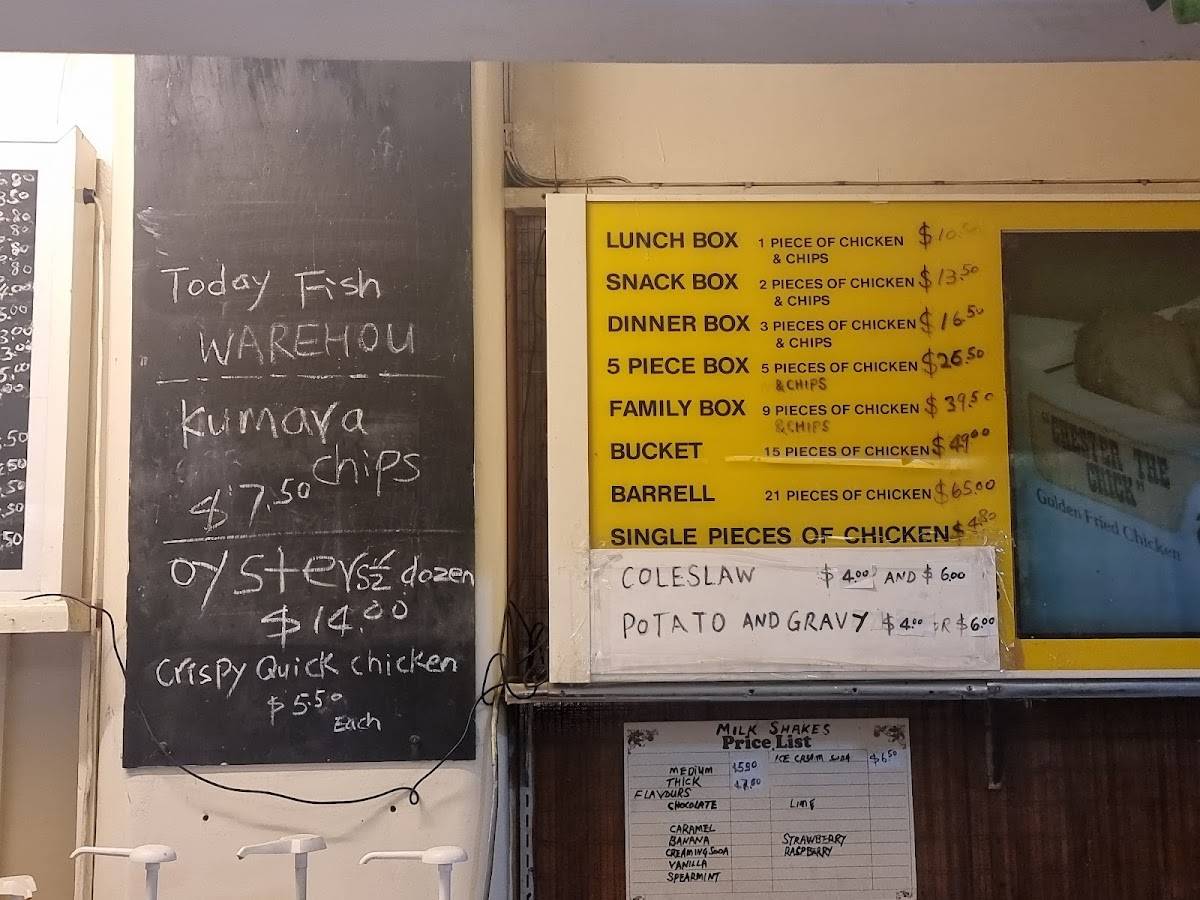 .80
3.50
.80
.80
.80
4.00
5.00
3.00
3.00
5.00
.00
.50
.50
.50
.50
.50
Today Fish
WAREHOU
Kumara
chips
$7.50
oysters ½ dozen
$14.00
Crispy Quick chicken
$5.50
Each
LUNCH BOX 1 PIECE OF CHICKEN $10.50
& CHIPS
SNACK BOX 2 PIECES OF CHICKEN $13.50
& CHIPS
DINNER BOX 3 PIECES OF CHICKEN $16.50
& CHIPS
5 PIECE BOX 5 PIECES OF CHICKEN $26.50
& CHIPS
FAMILY BOX 9 PIECES OF CHICKEN $39.50
& CHIPS
BUCKET 15 PIECES OF CHICKEN $49.00
BARRELL 21 PIECES OF CHICKEN $65.00
SINGLE PIECES OF CHICKEN $4.80
COLESLAW $4.00 AND $6.00
POTATO AND GRAVY $4.00 OR $6.00
"CHESTER THE
CHICK"
Golden Fried Chicken
MILK SHAKES
Price List
ICE CREAM SODA $6.50
MEDIUM $5.90
THICK
FLAVOURS
CHOCOLATE LIME
CARAMEL
BANANA STRAWBERRY
CREAMING SODA RASPBERRY
VANILLA
SPEARMINT